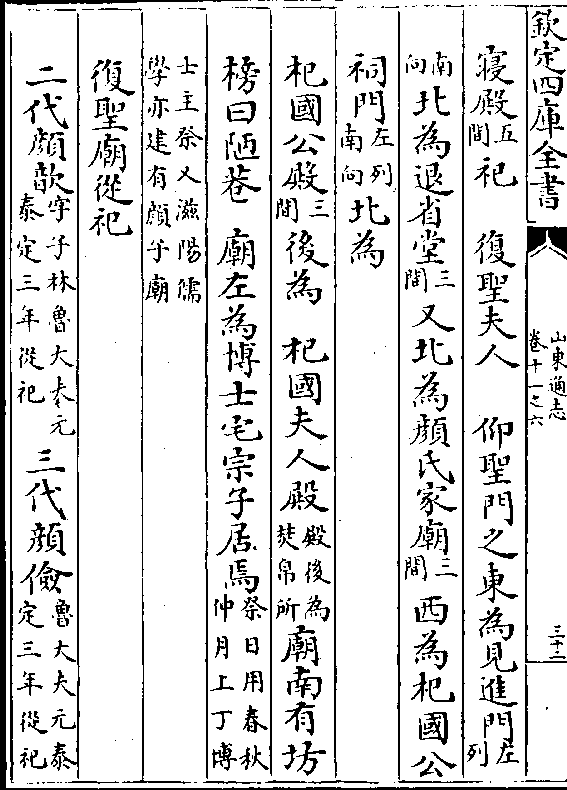 欽定四庫全書
山東通志
卷十一之六
三十二
寢殿五間祀　復聖夫人　仰聖門之東為見進門左列
南向北為退省堂三間又北為顔氏家廟三間西為杞國公
祠門左列南向北為
杞國公殿三間後為　杞國夫人殿殿後為焚帛所廟南有坊
榜曰陋巷　廟左為博士宅宗子居焉祭日用春秋仲月上丁博
士主祭又滋陽儒學亦建有顔子廟
復聖廟從祀
二代顔歆字子林魯大夫元泰定三年從祀三代顔儉魯大夫元泰定三年從祀